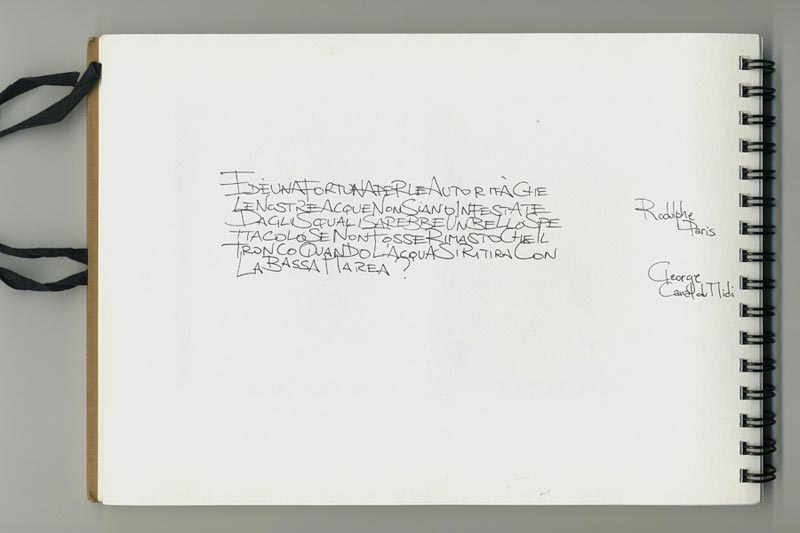 ED È UNA FORTUNA PER LE AUTORITÀ CHE
LE NOSTRE ACQUE NON SIANO INFESTATE
DAGLI SQUALI SAREBBE UN BELLO SPE
TTACOLO SE NON FOSSE RIMASTO CHE IL
TRONCO QUANDO L'ACQUA SI RITIRA CON
LA BASSA MAREA ?
Rodolphe
Paris
George
Canal du Midi